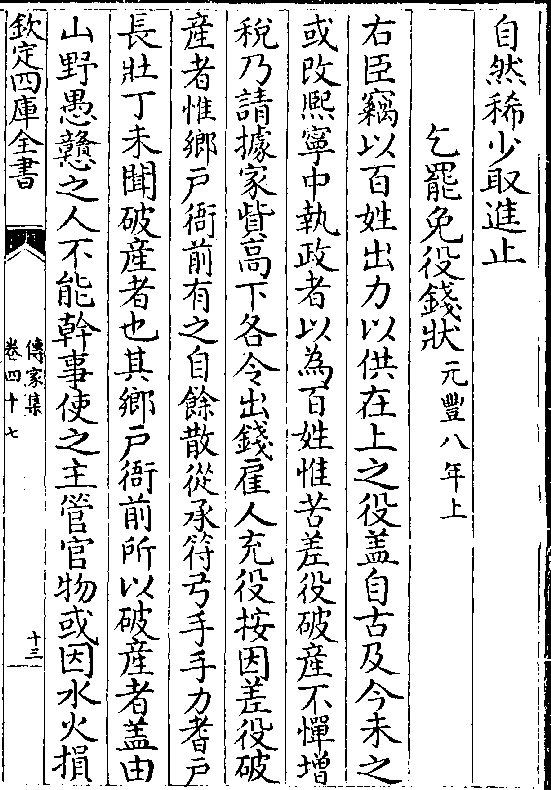 自然稀少取進止
乞罷免役錢狀元豐八年上
右臣竊以百姓出力以供在上之役蓋自古及今未之
或改熙寧中執政者以為百姓惟苦差役破產不憚增
稅乃請據家貲高下各令出錢雇人充役按因差役破
產者惟鄉戸衙前有之自餘散從承符弓手手力耆戸
長壯丁未聞破産者也其鄉戸衙前所以破産者蓋由
山野愚戇之人不能幹事使之主管官物或因水火損
欽定四庫全書
傳家集
卷四十七
十三